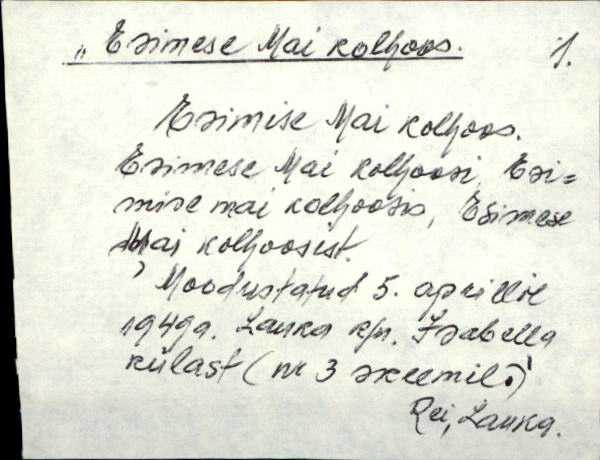 „Esimese Mai kolhoos. 1.
Esimise Mai kolhoos.
Esimese Mai kolhoosi, Esi=
mise mai kolhoosis, Esimese
Mai kolhoosist.
Moodustatud 5. aprillil
1949a. Lauka k/n. Isabella
külast (nr 3 skeemil.)
Rei, Lauka.